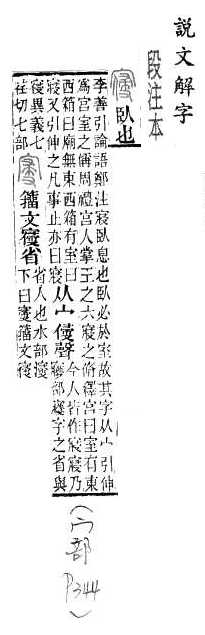 說文解字
段注本
臥也
李善引論語鄭注寑臥息也臥必於室故其字从宀引伸
爲宮室之偁周禮宮人掌王之六寑之脩釋宮曰室有東
西箱曰廟無東西箱有室曰
寑又引伸之凡事止亦曰寑
从宀㑴聲
今人皆作寢寢乃
㝱部寢字之省與
寑異義七
荏切七部
籒文寑省
省人也水部濅
下曰𡫏籒文寑
(宀部
P344)